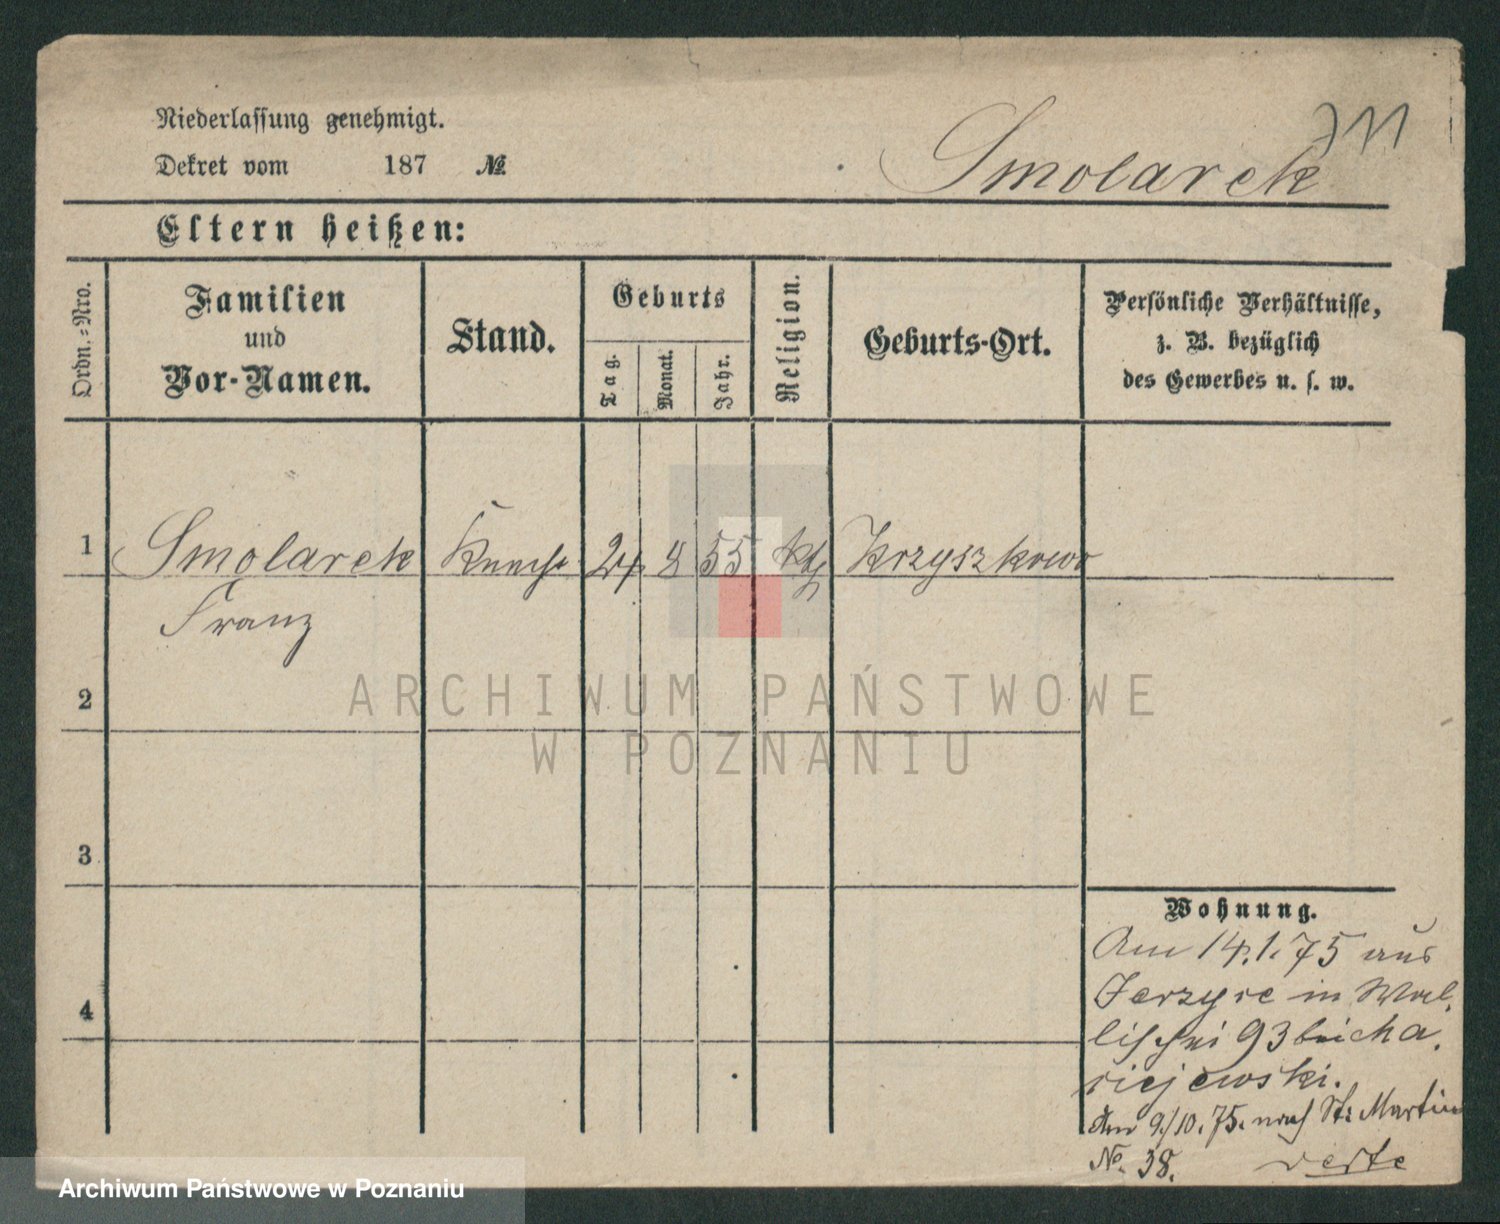 Niederlassung genehmigt.
Dekret vom 187 №
Smolarek
Eltern heißen:
Ordn.-Nro.
Familien
und
Vor-Namen.
Stand.
Geburts
Tag.
Monat.
Jahr.
Religion.
Geburts-Ort.
Persönliche Verhältnisse,
z. B. bezüglich
des Gewerbes u. s. w.
1 Smolarek Knecht 24 8 55 kth Krzyszkowo
Franz
2
3
4
Wohnung.
Am 14.1.75 aus
Jerzyce in Wal.
lischei 93 bei Ma.
ciejewski.
Am 9/10.75. nach St: Martin
№ 38. verte
ARCHIWUM PAŃSTWOWE
W POZNANIU
Archiwum Państwowe w Poznaniu